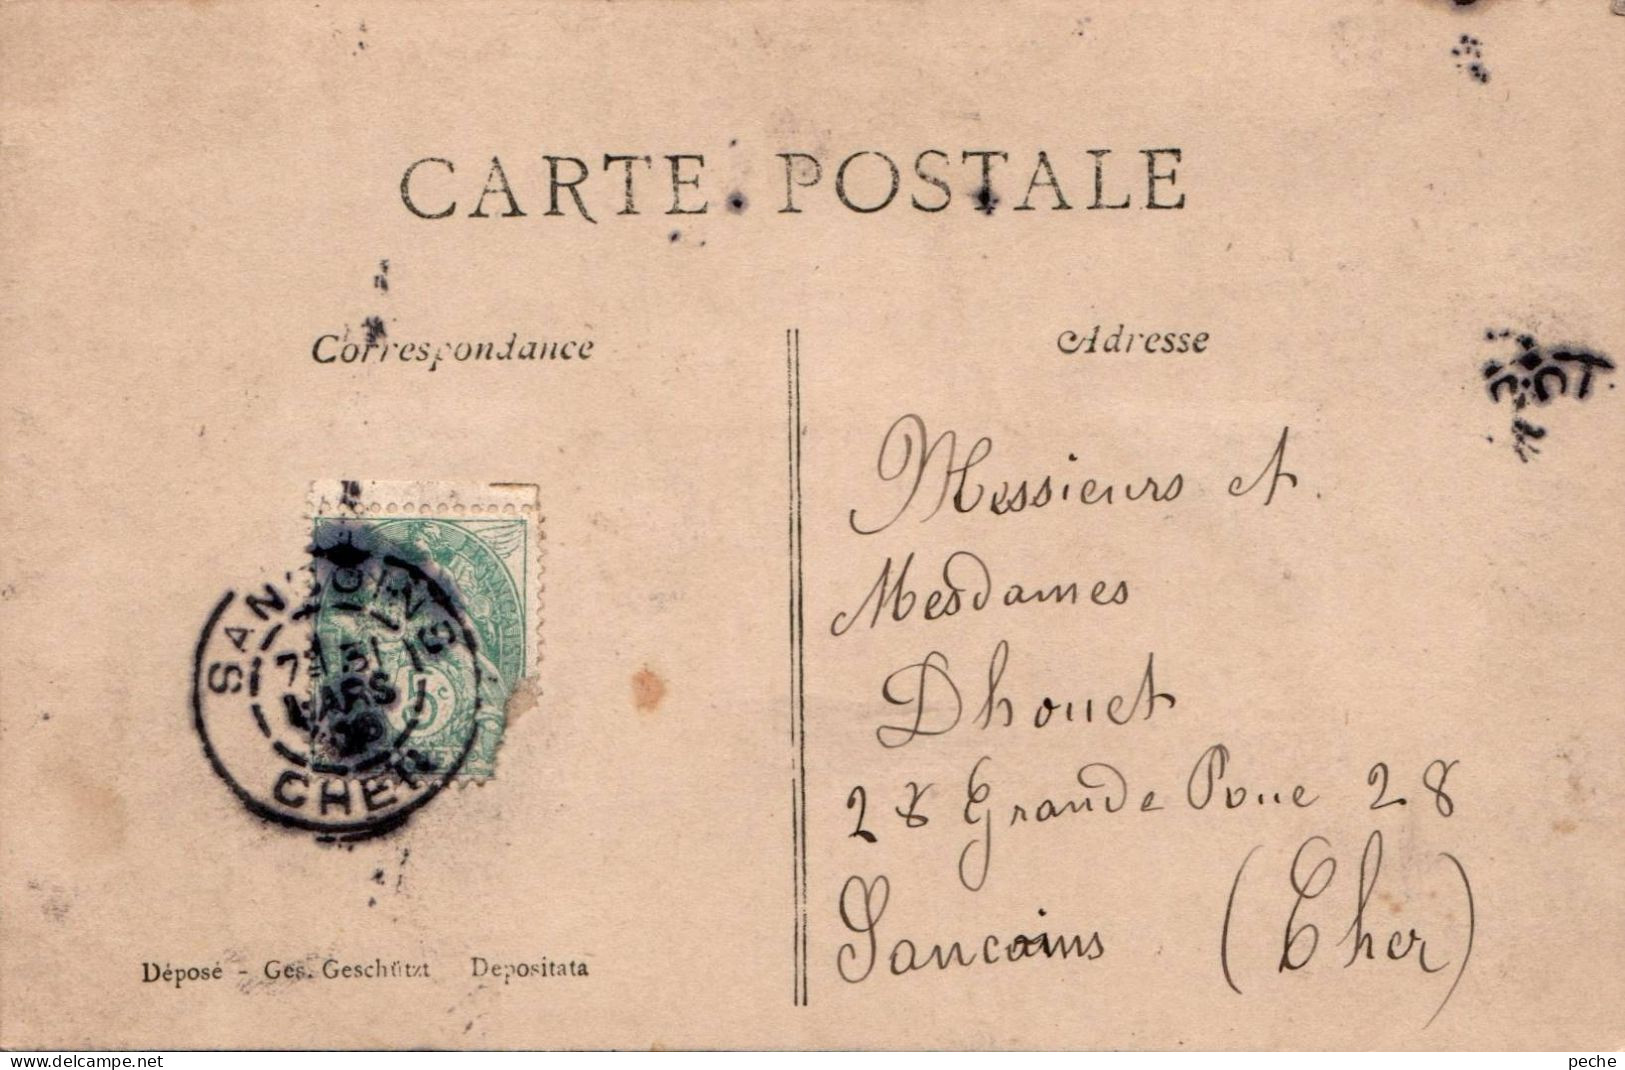 CARTE POSTALE
Correspondance
Adresse
Messieurs et
Mesdames
Dhouet
28 Grande Roue 28
Sancoins (Cher)
SANCOINS
31
MARS
CHER
5c
Déposé - Ges. Geschützt Depositata
www.delcampe.net
peche